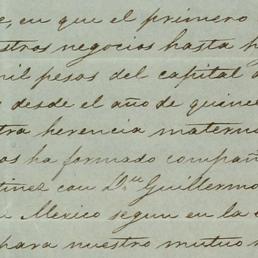 e, en que el primero
stros negocios hasta h
mil pesos del capital
desde el año de quince
tra herencia materna
os ha formado compañ
tinez con D.n Guillermo
Mexico segun en la
para nuestro mutuo